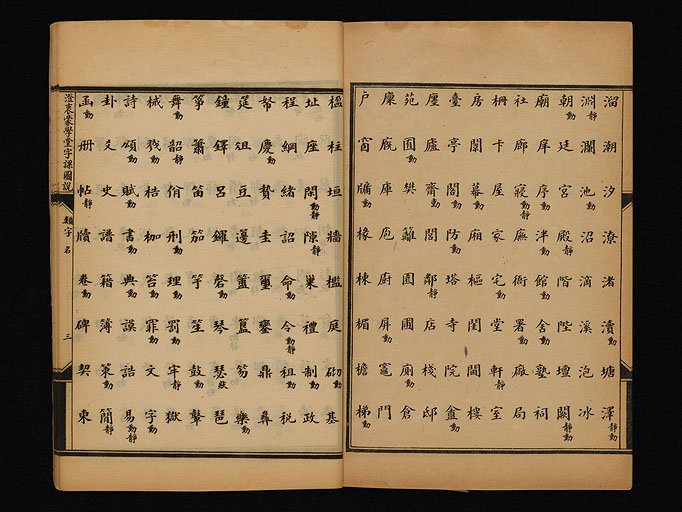 溜潮汐潦渚瀆動塘澤動靜
淵靜瀾池動沼滴溪泡冰
朝動廷宮殿動靜階陛壇關動靜
廟庠序動泮動館動舍動塾祠
社廊寢動靜廡衙署動廠局
柵卡屋家宅動堂軒靜室
房闈幕動廂樞閨閫樓
臺亭閣動防動塔寺院盦動
廛廬齋動閭鄰靜店棧邸
苑囿動樊籬園圃廁動倉
廩廄庫庖廚屏動竈門
戶窗牖動椽棟楣檐梯動
楹柱垣牆檻庭砌動基
址座閑動靜隙動靜巢禮制動政
程綱緒詔命動令動靜租動稅
帑慶動贄圭璽鑾鼎彝
筵俎豆籩簠簋笏樂動
鐘鐸呂鑼磬動琴瑟狀琶
箏簫笛笳竽笙鼓動鼙
舞動韶靜佾刑動理動罰動牢靜獄
械動梏枷笞動罪動文字動
詩頌動賦動書動典動謨誥易動靜
卦爻史譜籍簿策動簡靜
函動册帖靜牘卷動碑契柬
澄衷蒙學堂字課圖說 類字 名 三